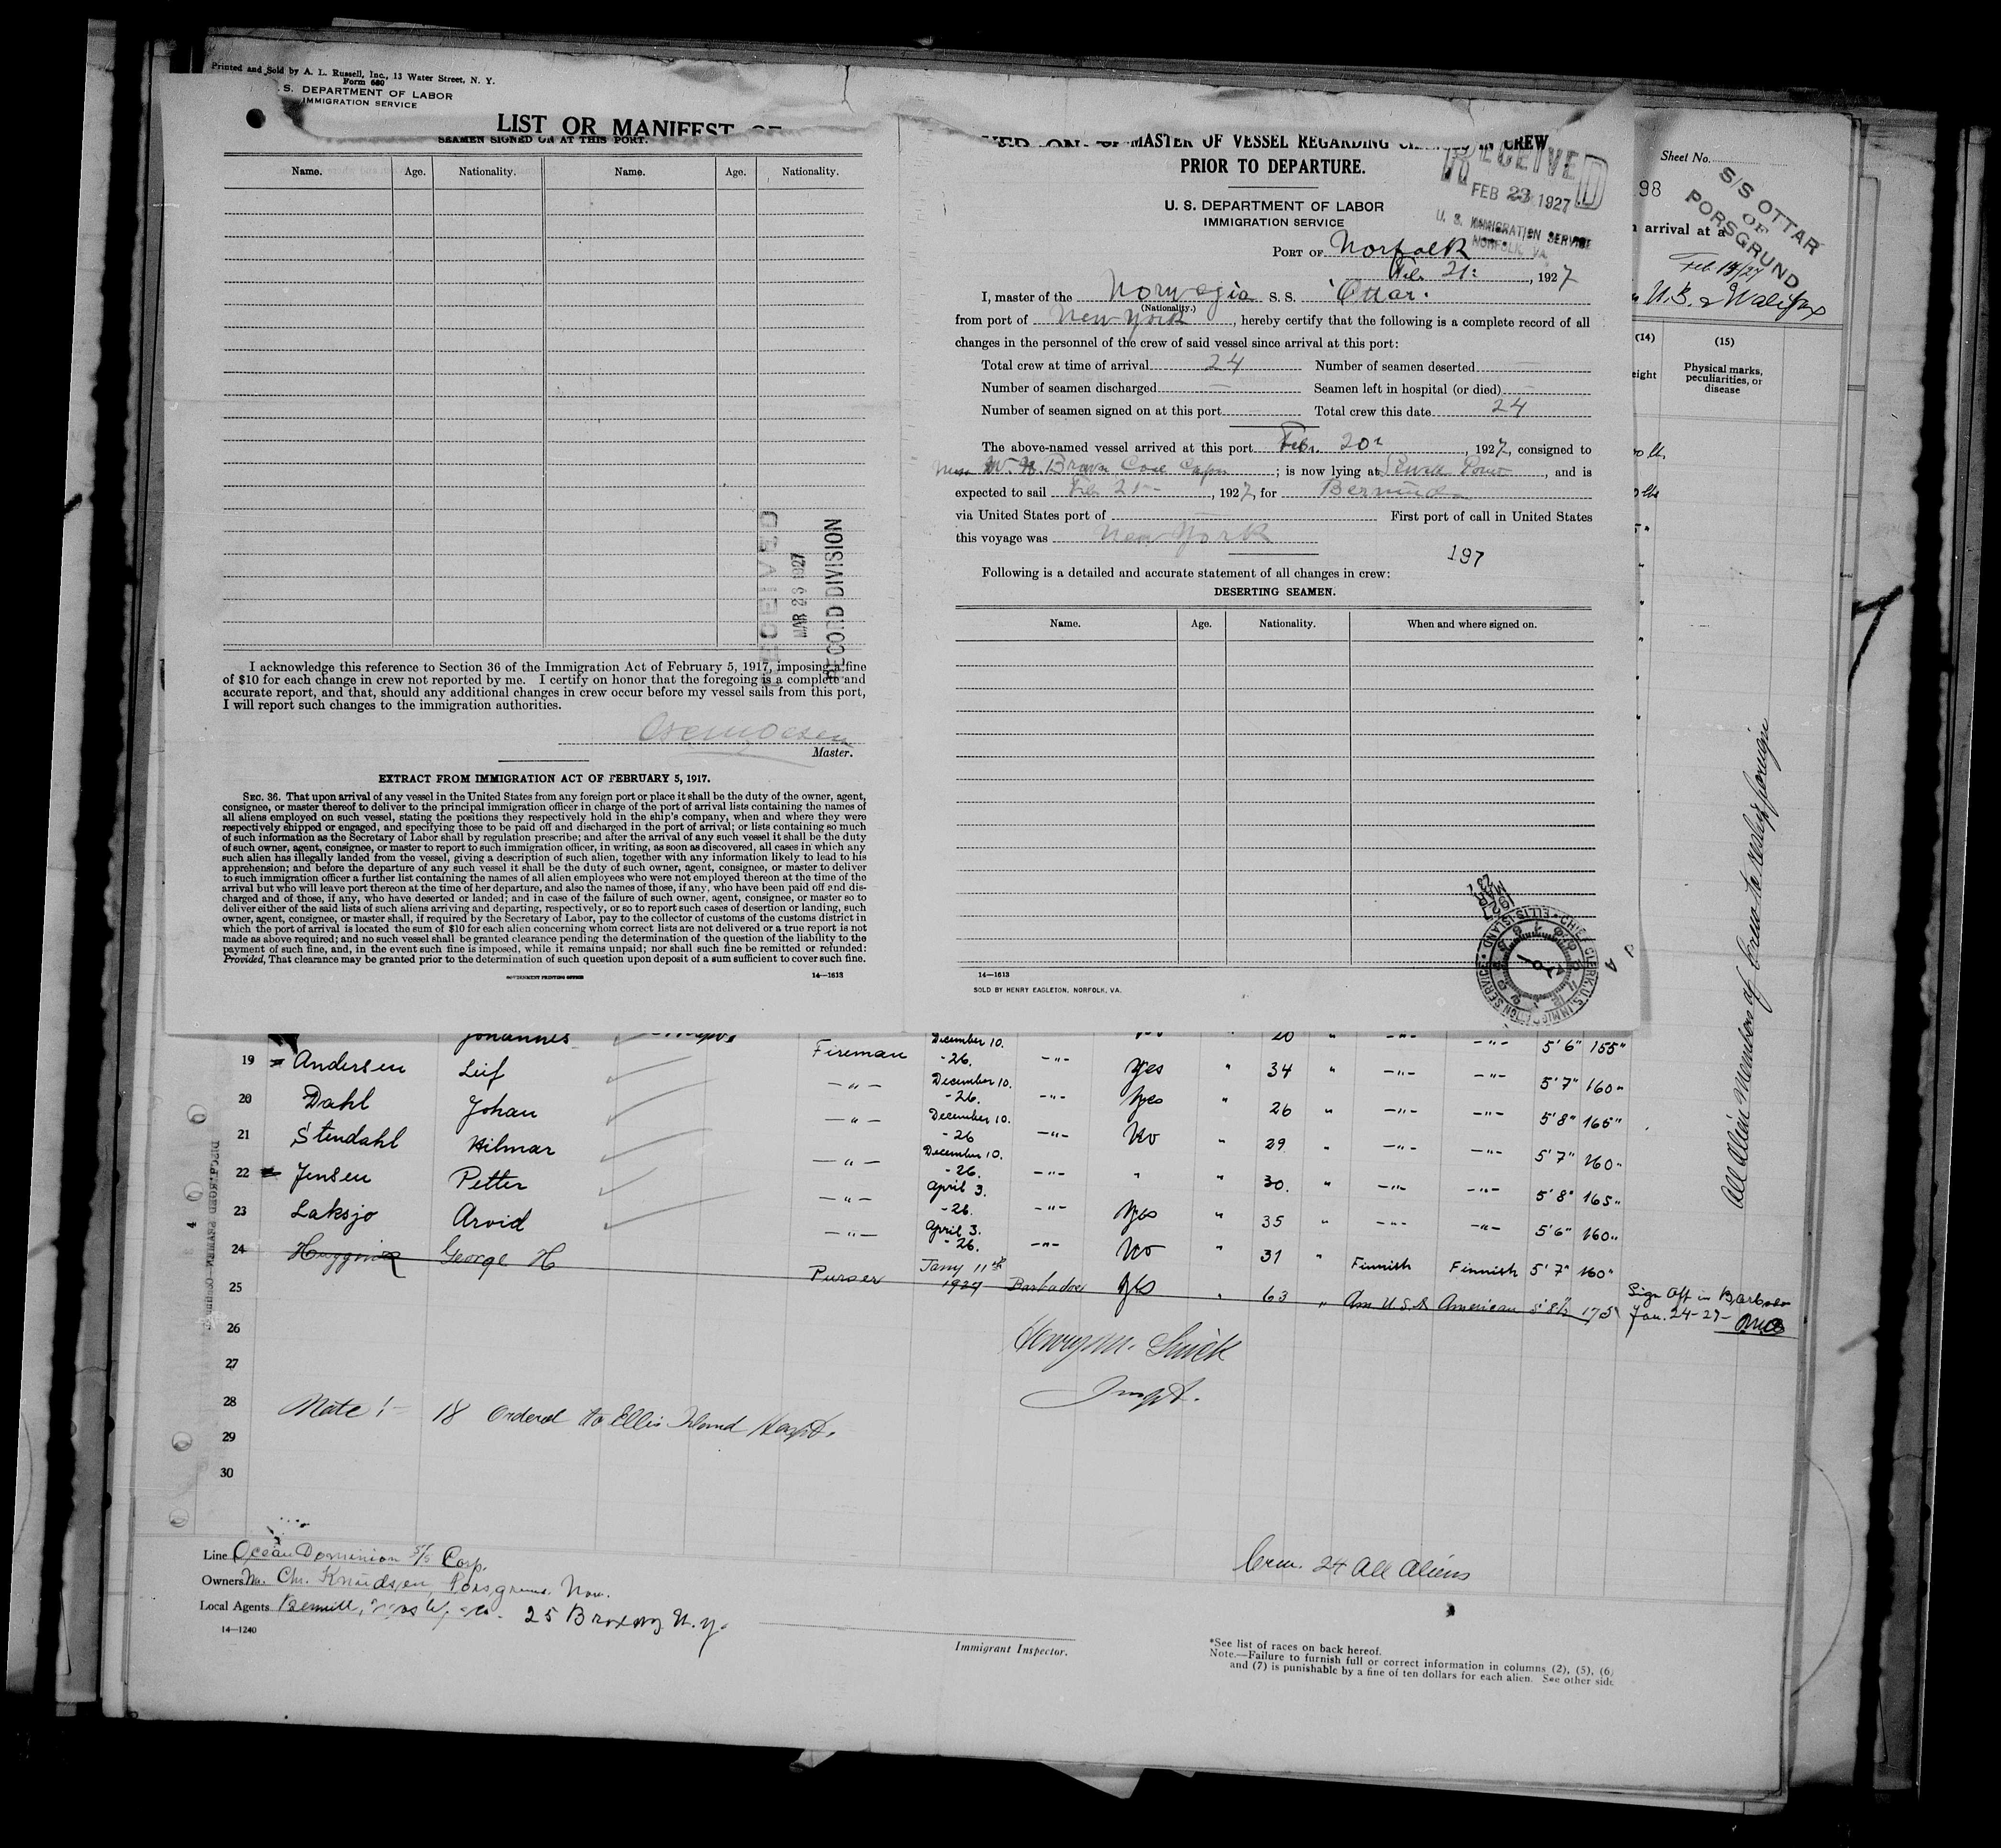 Printed and Sold by A. L. Russell, Inc., 13 Water Street, N. Y.
Form 680
S. DEPARTMENT OF LABOR
IMMIGRATION SERVICE
LIST OR MANIFEST OF
SEAMEN SIGNED ON AT THIS PORT.
Name. Age. Nationality. Name. Age. Nationality.
RECEIVED
MAR 23 1927
RECORD DIVISION
I acknowledge this reference to Section 36 of the Immigration Act of February 5, 1917, imposing a fine
of $10 for each change in crew not reported by me. I certify on honor that the foregoing is a complete and
accurate report, and that, should any additional changes in crew occur before my vessel sails from this port,
I will report such changes to the immigration authorities.
Master.
EXTRACT FROM IMMIGRATION ACT OF FEBRUARY 5, 1917.
SEC. 36. That upon arrival of any vessel in the United States from any foreign port or place it shall be the duty of the owner, agent,
consignee, or master thereof to deliver to the principal immigration officer in charge of the port of arrival lists containing the names of
all aliens employed on such vessel, stating the positions they respectively hold in the ship's company, when and where they were
respectively shipped or engaged, and specifying those to be paid off and discharged in the port of arrival; or lists containing so much
of such information as the Secretary of Labor shall by regulation prescribe; and after the arrival of any such vessel it shall be the duty
of such owner, agent, consignee, or master to report to such immigration officer, in writing, as soon as discovered, all cases in which any
such alien has illegally landed from the vessel, giving a description of such alien, together with any information likely to lead to his
apprehension; and before the departure of any such vessel it shall be the duty of such owner, agent, consignee, or master to deliver
to such immigration officer a further list containing the names of all alien employees who were not employed thereon at the time of the
arrival but who will leave port thereon at the time of her departure, and also the names of those, if any, who have been paid off and dis-
charged and of those, if any, who have deserted or landed; and in case of the failure of such owner, agent, consignee, or master so to
deliver either of the said lists of such aliens arriving and departing, respectively, or so to report such cases of desertion or landing, such
owner, agent, consignee, or master shall, if required by the Secretary of Labor, pay to the collector of customs of the customs district in
which the port of arrival is located the sum of $10 for each alien concerning whom correct lists are not delivered or a true report is not
made as above required; and no such vessel shall be granted clearance pending the determination of the question of the liability to the
payment of such fine, and, in the event such fine is imposed, while it remains unpaid; nor shall such fine be remitted or refunded:
Provided, That clearance may be granted prior to the determination of such question upon deposit of a sum sufficient to cover such fine.
GOVERNMENT PRINTING OFFICE 14—1613
MASTER OF VESSEL REGARDING CHANGES IN CREW
PRIOR TO DEPARTURE.
RECEIVED
FEB 23 1927
U. S. IMMIGRATION SERVICE
NORFOLK, VA.
U. S. DEPARTMENT OF LABOR
IMMIGRATION SERVICE
PORT OF Norfolk
Feb. 21:, 1927
I, master of the Norwegia S. S. "Ottar."
(Nationality.)
from port of New York, hereby certify that the following is a complete record of all
changes in the personnel of the crew of said vessel since arrival at this port:
Total crew at time of arrival 24 Number of seamen deserted
Number of seamen discharged — Seamen left in hospital (or died) —
Number of seamen signed on at this port Total crew this date 24
The above-named vessel arrived at this port Feb. 20, 1927, consigned to
; is now lying at, and is
expected to sail Feb 21, 1927, for Bermuda
via United States port of First port of call in United States
this voyage was New York
197
Following is a detailed and accurate statement of all changes in crew:
DESERTING SEAMEN.
Name. Age. Nationality. When and where signed on.
14—1613
SOLD BY HENRY EAGLETON, NORFOLK, VA.
CHIEF CLERK, U.S. IMMIGRATION SERVICE • ELLIS ISLAND
Sheet No.
98
S/S OTTAR
OF
PORSGRUND
arrival at a
(14) (15)
eight Physical marks, peculiarities, or disease
Johannes December 10. 20 " —"— —"— 5'6" 155"
19 Andersen Leif Fireman -26. —"— yes " 34 " —"— —"— 5'7" 160"
20 Dahl Johan —"— December 10. -26. —"— yes " 26 " —"— —"— 5'8" 165"
21 Stendahl Hilmar —"— December 10. -26 —"— No " 29 " —"— —"— 5'7" 160"
22 Jensen Petter —"— December 10. -26. —"— " " 30. " —"— —"— 5'8" 165"
23 Laksjo Arvid —"— April 3. -26. —"— yes " 35 " —"— —"— 5'6" 160"
24 George H —"— April 3. -26. —"— No " 31 " Finnish Finnish 5'7" 160"
25 Purser Jany 11th 1927 Barbados yes " 63 " Am U S A American 5'8½ 175
Sign Off in Barbados
Jan. 24-27-
26
27
Inspt.
28 Note!- 18 Ordered to Ellis Island Hospt.
29
30
Crew. 24 All Aliens
Line Ocean Dominion S/S Corp.
Owners Chr. Knudsen, Porsgrund. Nor.
Local Agents 25 Broadway N.Y.
14—1240
Immigrant Inspector.
*See list of races on back hereof.
Note.—Failure to furnish full or correct information in columns (2), (5), (6)
and (7) is punishable by a fine of ten dollars for each alien. See other side